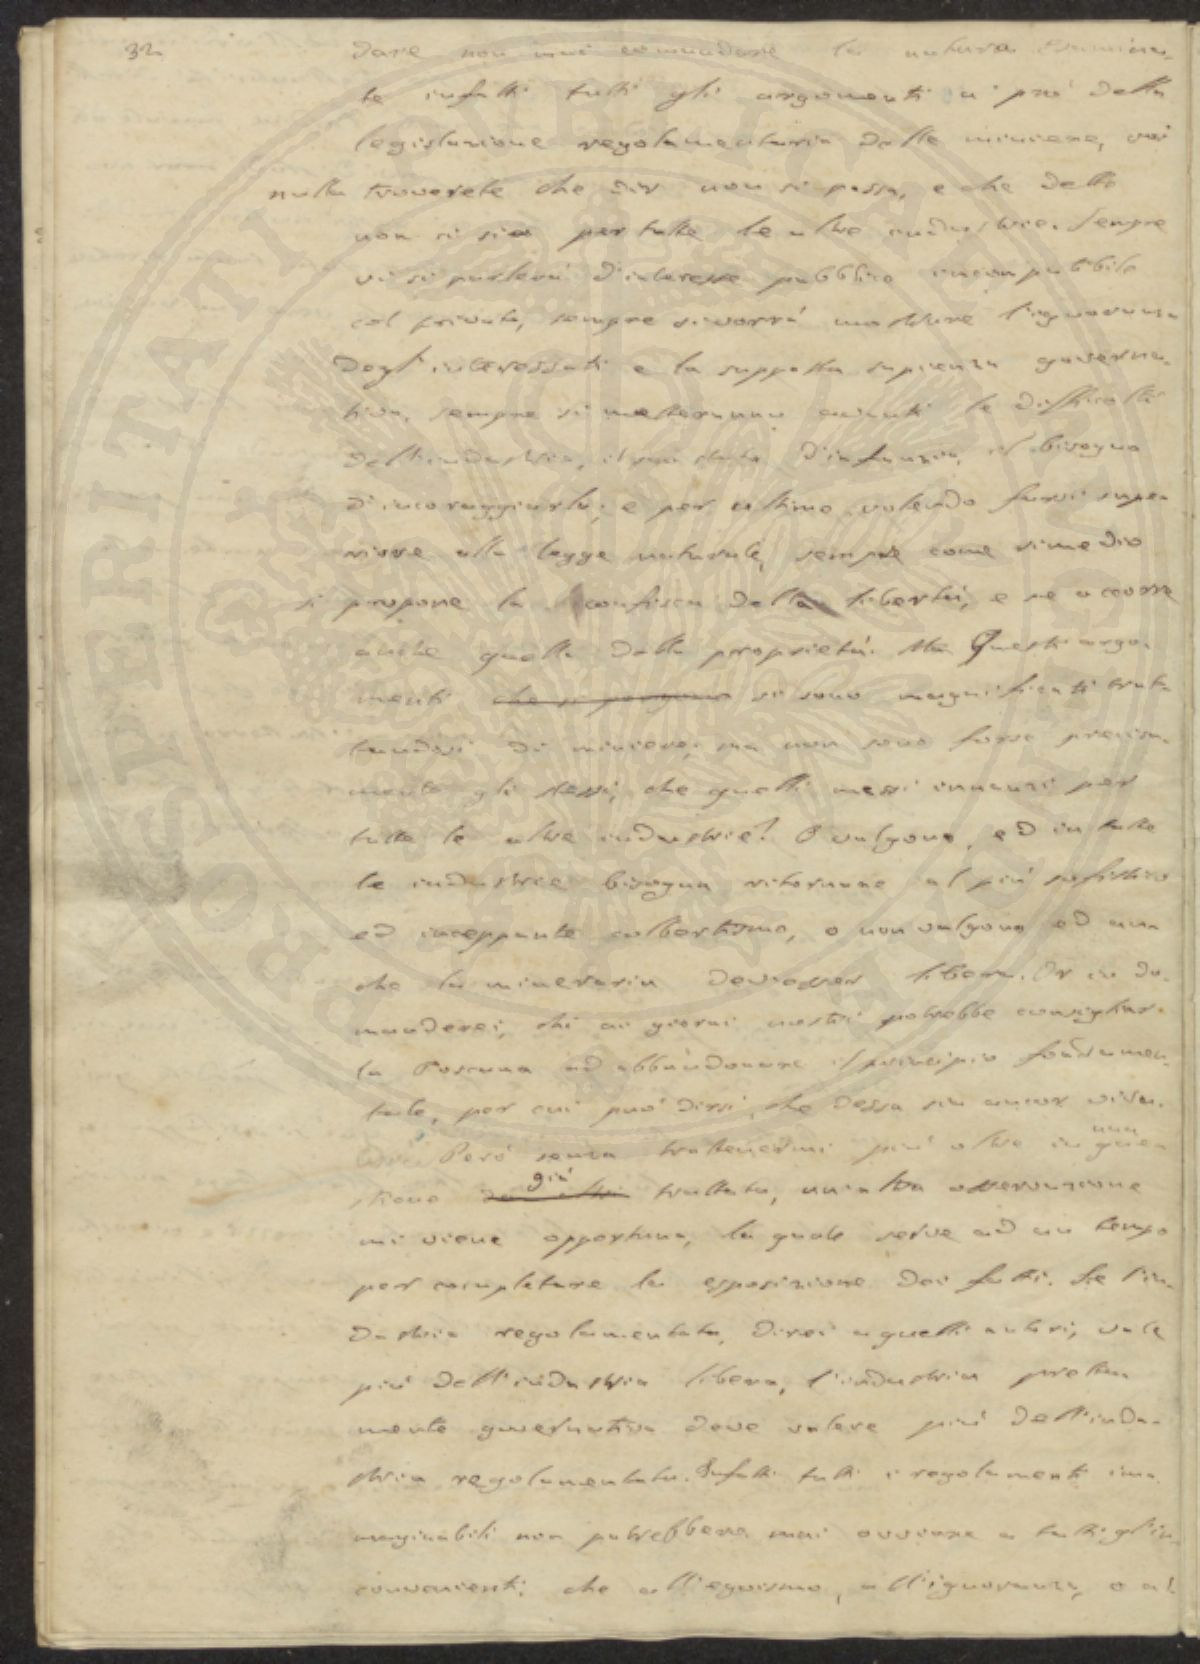 32
dare non mai comandare la natura. Esamina-
te infatti tutti gli argomenti a prò della
legislazione regolamentaria delle miniere, voi
nulla troverete che dir non si possa, e che detto
non si sia per tutte le altre industrie. Sempre
vi si parlerà d'interesse pubblico incompatibile
col privato, sempre si vorrà mostrare l'ignoranza
degl'interessati e la supposta sapienza governa-
tiva, sempre si metteranno avanti le difficoltà
dell'industria, il suo stato d'infanzia, il bisogno
d'incoraggiarla; e per ultimo volendo farsi supe-
riore alla legge naturale, sempre come rimedio
si propone la confisca della libertà, e se occorre
anche quella della proprietà. Ma Questi argo-
menti che si pongono si sono magnificati trat-
tandosi di miniere; ma non sono forse precisa-
mente gli stessi, che quelli messi innanzi per
tutte le altre industrie? O valgono, ed in tutte
le industrie bisogna ritornare al più sofistico
ed inceppante colbertismo, o non valgono ed an-
che la mineraria dev'esser libera. Or io do-
manderei, chi ai giorni nostri potrebbe consigliar
la Toscana ad abbandonare il principio fondamen-
tale, per cui può dirsi, che dessa sia ancor viva.
Però senza trattenermi più oltre in una ques
stione già trattata, un'altra osservazione
mi viene opportuna, la quale serve ad un tempo
per completare la esposizione dei fatti. Se l'in-
dustria regolamentata, direi a quelli autori, vale
più dell'industria libera, l'industria pretta
mente governativa deve valere più dell'indu-
stria regolamentata. Infatti tutti i regolamenti im-
maginabili non potrebbero mai ovviare a tutti gl'in-
convenienti, che all'egoismo, all'ignoranza, o al